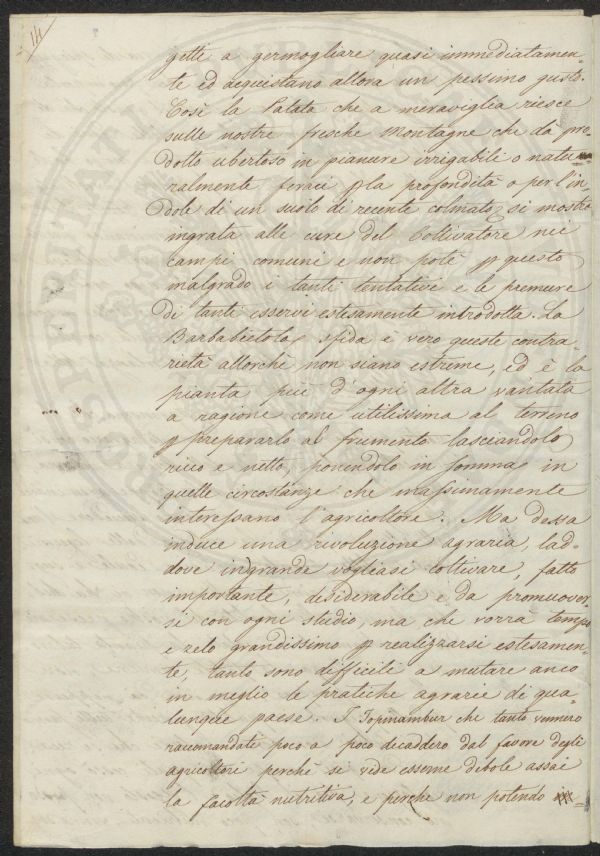 14
gette a germogliare quasi immediatamen-
te ed acquistano allora un pessimo gusto.
Così la Patata che a meraviglia riesce
sulle nostre fresche Montagne che dà pro-
dotto ubertoso in pianure irrigabili o natu-
ralmente feraci p la profondità o per l'in-
dole di un suolo di recente colmato, si mostra
ingrata alle cure del Coltivatore nei
campi comuni e non potè p questo
malgrado i tanti tentativi e le premure
di tanti esservi estesamente introdotta. La
Barbabietola, sfida è vero queste contra-
rietà allorchè non siano estreme, ed è la
pianta più d'ogni altra vantata
a ragione come utilissima al terreno
p prepararlo al frumento lasciandolo
ricco e netto, ponendolo in somma in
quelle circostanze che massimamente
interessano l'agricoltore. Ma dessa
induce una rivoluzione agraria, lad-
dove in grande vogliasi coltivare, fatto
importante, desiderabile e da promuover-
si con ogni studio, ma che vorrà tempo
e zelo grandissimo p realizzarsi estesamen-
te, tanto sono difficili a mutare anco
in meglio le pratiche agrarie di qua-
lunque paese. I Topinambur che tanto vennero
raccomandati poco a poco decaddero dal favore degli
agricoltori perchè si vide esserne debole assai
la facoltà nutritiva, e perchè non potendo